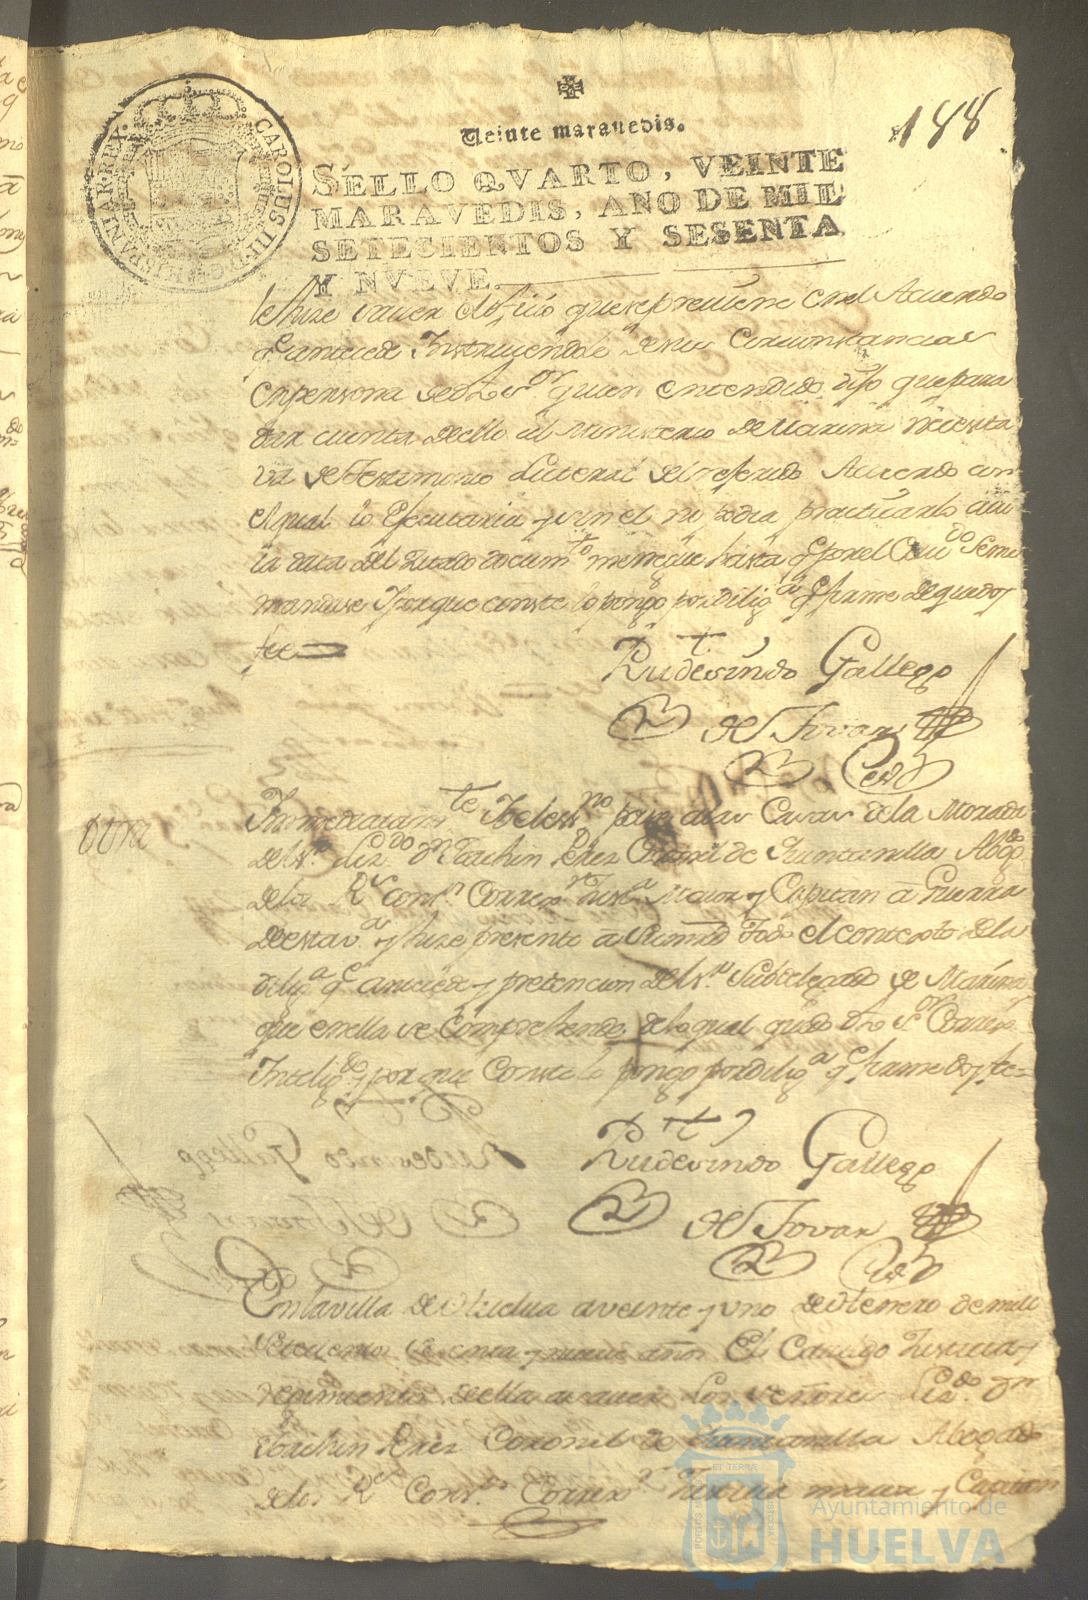 188
Veinte maravedis.
SELLO QVARTO, VEINTE
MARAVEDIS, AÑO DE MIL
SETECIENTOS Y SESENTA
Y NVEVE.
CAROLUS III D G HISPANIAR REX
le hize saver el ofiº que se previene en el Acuerdo
q antecede Instruyendole de sus Circunstancias
en persona de dho sor quien entendido, dijo que para
dar cuenta de ello al Ministerio de Marina necesita
va de testimonio Literal del referido Acuerdo con
el qual lo Executaria y sin el no podia practicarlo
la data del documto hasta q por el
mandase Y porque conste lo pongo por diliga q firme de que doy
fee
Rudesindo Gallego
de Tovar
Otra
Inmediatamte Yo el essno pase a las Casas de la Morada
del sr Lizdo Dn Joachin Perez Coronel de Abogdo
de los Rs conss Correxor Justa Maior y Capitan a Guerra
de esta va y hize presente a su mrd todo el contexto de la
diliga q antecede y pretencion del sr Subdelegado de Marina
que en ella se Comprehende, de lo qual quedo dho Sor Correxor
Inteligdo y por que Conste lo pongo por diliga q firme doy fe
Rudesindo Gallego
de Tovar
En la villa de Huelva a veinte y uno de Henero de mill
setecientos sesenta y nueve años El Cavildo Justicia y
regimiento de ella a saver Los señores Lizdo Dn
Joachin Perez Coronel de Abogado
de los Rs Conss Correxor Justicia maior y Capitan
Ayuntamiento de
HUELVA